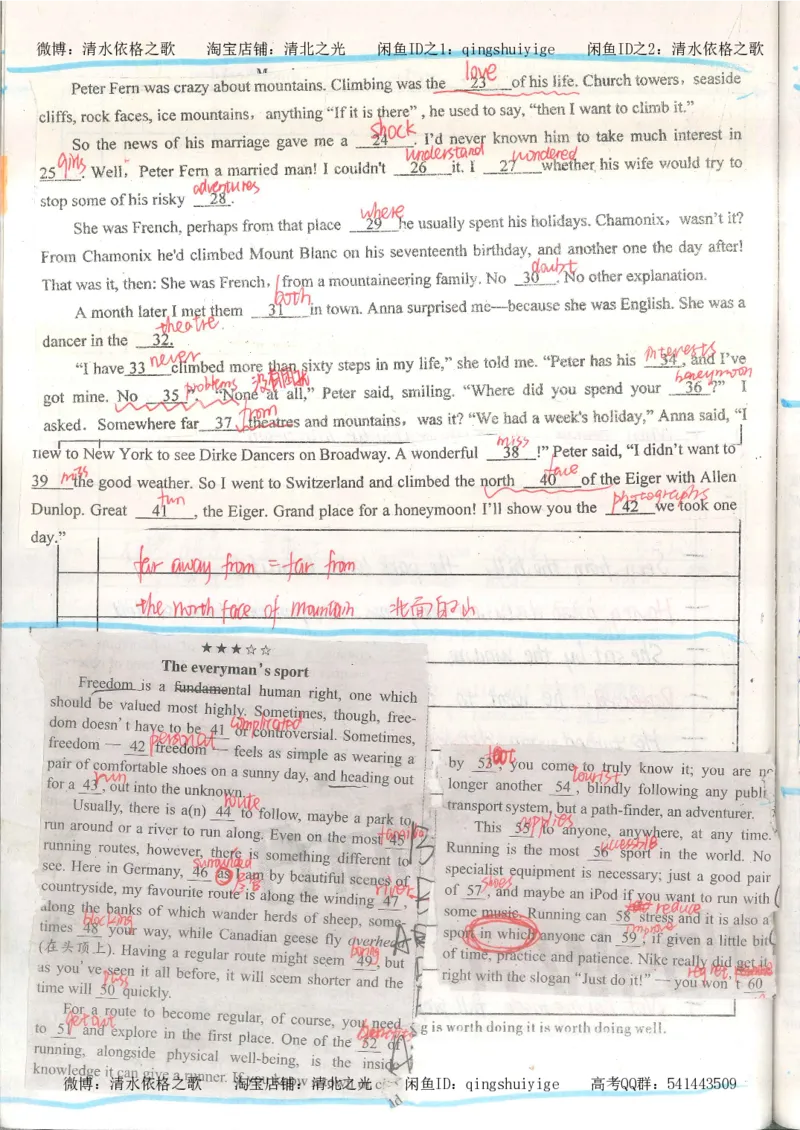 微博：清水依格之歌 淘宝店铺：清北之光 闲鱼ID之1：qingshuiyige 闲鱼ID之2：清水依格之歌
Peter Fern was crazy about mountains. Climbing was the 23 love of his life. Church towers, seaside
cliffs, rock faces, ice mountains, anything “If it is there”, he used to say, “then I want to climb it.”
So the news of his marriage gave me a 24 shock. I’d never known him to take much interest in
25 girls. Well, Peter Fern a married man! I couldn't 26 understand it. I 27 wondered whether his wife would try to
stop some of his risky 28 adventures.
She was French, perhaps from that place 29 where he usually spent his holidays. Chamonix, wasn’t it?
From Chamonix he'd climbed Mount Blanc on his seventeenth birthday, and another one the day after!
That was it, then: She was French, from a mountaineering family. No 30 doubt. No other explanation.
A month later I met them 31 both in town. Anna surprised me—because she was English. She was a
dancer in the 32. theatre.
“I have 33 never climbed more than sixty steps in my life,” she told me. “Peter has his 34 interests, and I’ve
got mine. No 35 problems”. “None at all,” Peter said, smiling. “Where did you spend your 36 honeymoon?” I
asked. Somewhere far 37 from theatres and mountains, was it? “We had a week's holiday,” Anna said, “I
new to New York to see Dirke Dancers on Broadway. A wonderful 38 miss!” Peter said, “I didn’t want to
39 miss the good weather. So I went to Switzerland and climbed the north 40 face of the Eiger with Allen
Dunlop. Great 41 fun, the Eiger. Grand place for a honeymoon! I’ll show you the 42 photographs we took one
day.”
far away from = far from
the north face of mountain 北面的山
★★★☆☆
The everyman’s sport
Freedom is a fundamental human right, one which
should be valued most highly. Sometimes, though, free-
dom doesn’t have to be 41 complicated or controversial. Sometimes,
freedom — 42 personal freedom — feels as simple as wearing a
pair of comfortable shoes on a sunny day, and heading out
for a 43 run, out into the unknown.
Usually, there is a(n) 44 route to follow, maybe a park to
run around or a river to run along. Even on the most 45
running routes, however, there is something different to
see. Here in Germany, 46 surrounded as I am by beautiful scenes of
countryside, my favourite route is along the winding 47 river,
along the banks of which wander herds of sheep, some-
times 48 blocking your way, while Canadian geese fly overhead
(在头顶上). Having a regular route might seem 49 boring, but
as you’ve seen it all before, it will seem shorter and the
time will 50 pass quickly.
For a route to become regular, of course, you need
to 51 get out and explore in the first place. One of the 52 of
running, alongside physical well-being, is the inside
knowledge it can give a runner.
by 53 foot, you come to truly know it; you are no
longer another 54 tourist, blindly following any publi
transport system, but a path-finder, an adventurer.
This 55 applies to anyone, anywhere, at any time.
Running is the most 56 accessible sport in the world. No
specialist equipment is necessary; just a good pair
of 57 shoes, and maybe an iPod if you want to run with
some music. Running can 58 reduce stress and it is also a
sport in which anyone can 59 improve, if given a little bit
of time, practice and patience. Nike really did get it
right with the slogan “Just do it!” — you won’t 60 regret
g is worth doing it is worth doing well.
微博：清水依格之歌 淘宝店铺：清北之光 闲鱼ID：qingshuiyige 高考QQ群：541443509